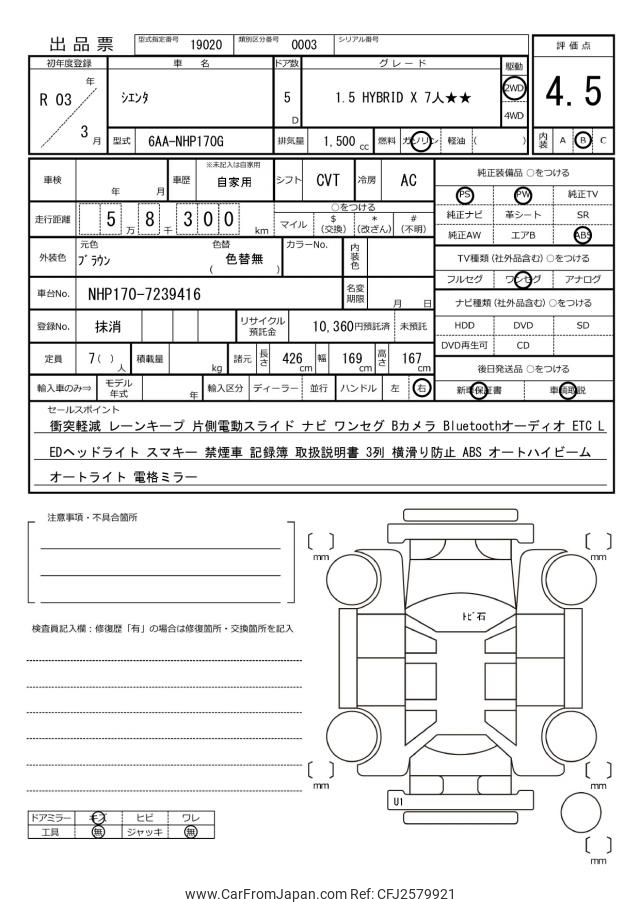 出品票
型式指定番号 19020 類別区分番号 0003 シリアル番号
評価点
4.5
内装 A B C
初年度登録 車名 ドア数 グレード 駆動
R 03 年 3 月
シエンタ
5 D
1.5 HYBRID X 7人★★
2WD
4WD
型式 6AA-NHP170G 排気量 1,500 cc 燃料 ガソリン 軽油 ( )
車検 年 月 車歴 ※未記入は自家用 自家用 シフト CVT 冷房 AC
走行距離 5 万 8 千 3 0 0 km
○をつける
マイル $(交換) *(改ざん) #(不明)
外装色 元色 ブラウン 色替 ( 色替無 ) カラーNo. 内装色
車台No. NHP170-7239416 名変期限 月 日
登録No. 抹消 リサイクル預託金 10,360円預託済 未預託
定員 7( )人 積載量 kg 諸元 長さ 426 cm 幅 169 cm 高さ 167 cm
輸入車のみ⇒ モデル年式 年 輸入区分 ディーラー 並行 ハンドル 左 右
純正装備品 ○をつける
PS PW 純正TV
純正ナビ 革シート SR
純正AW エアB ABS
TV種類 (社外品含む) ○をつける
フルセグ ワンセグ アナログ
ナビ種類 (社外品含む) ○をつける
HDD DVD SD
DVD再生可 CD
後日発送品 ○をつける
新車保証書 車輌取説
セールスポイント
衝突軽減 レーンキープ 片側電動スライド ナビ ワンセグ Bカメラ Bluetoothオーディオ ETC L
EDヘッドライト スマキー 禁煙車 記録簿 取扱説明書 3列 横滑り防止 ABS オートハイビーム
オートライト 電格ミラー
注意事項・不具合箇所
検査員記入欄:修復歴「有」の場合は修復箇所・交換箇所を記入
mm
mm
トビ石
mm
mm
U1
mm
ドアミラー キズ ヒビ ワレ
工具 無 ジャッキ 無
www.CarFromJapan.com Ref: CFJ2579921